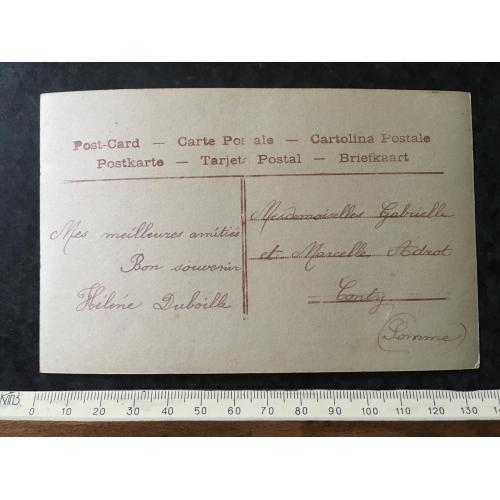 Post-Card — Carte Postale — Cartolina Postale
Postkarte — Tarjeta Postal — Briefkaart
Mes meilleures amitiés
Bon souvenir
Hélène Duboille
Mesdemoiselles Gabrielle
et Marcelle Adrot
Conty
(Somme)
0 10 20 30 40 50 60 70 80 90 100 110 120 130 140